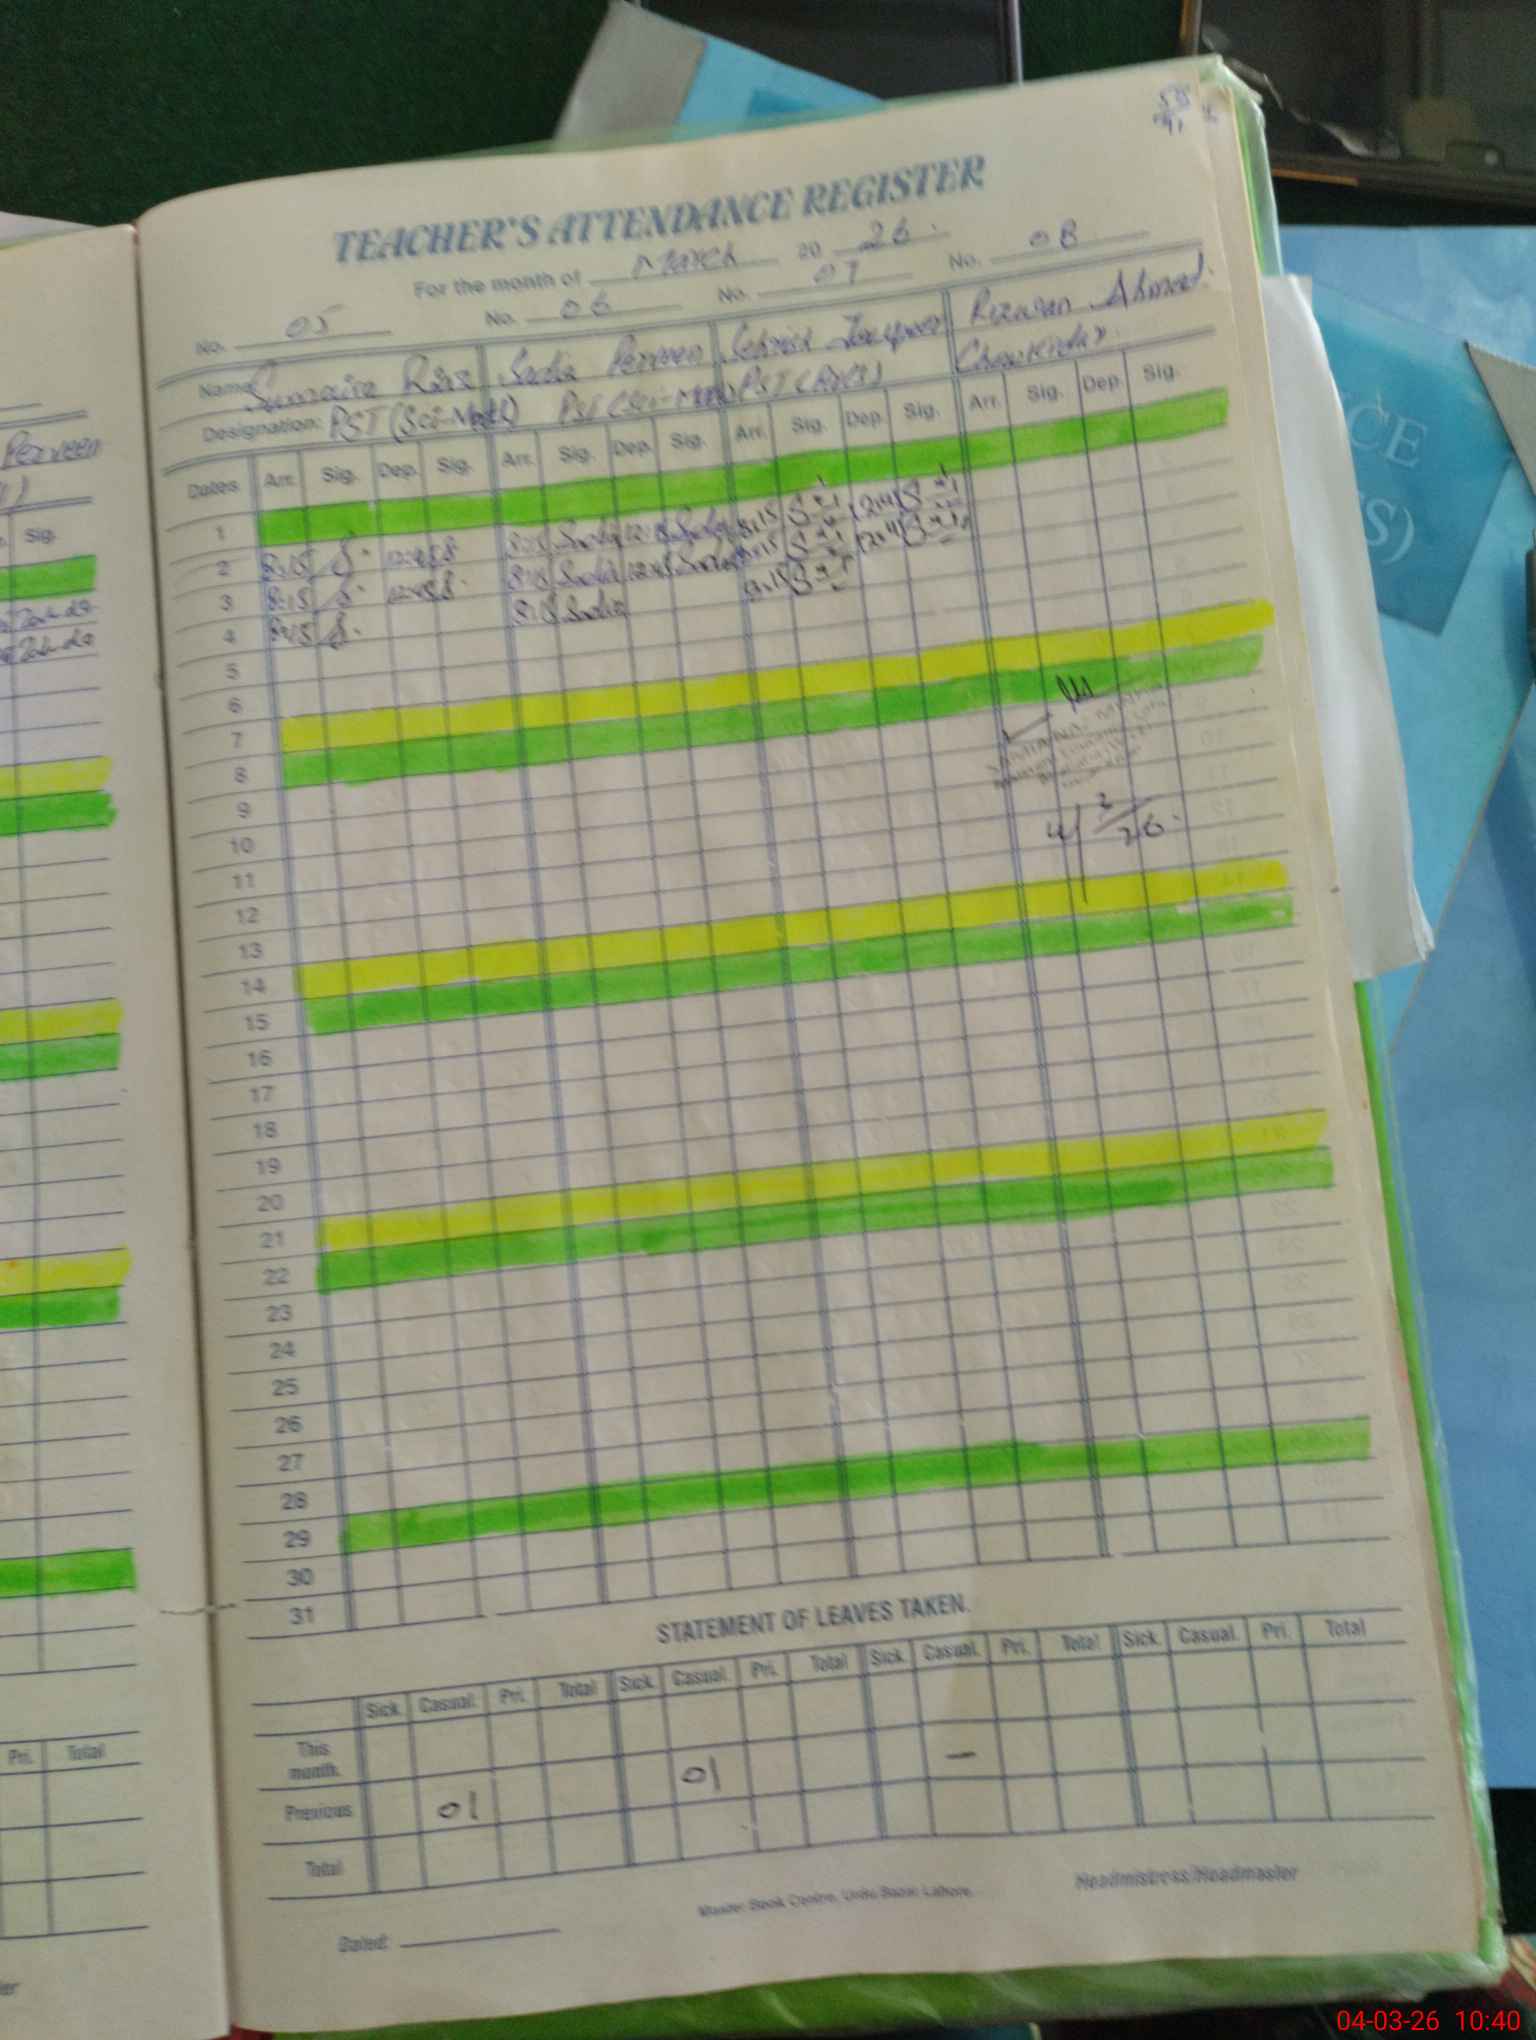 TEACHER'S ATTENDANCE REGISTER
For the month of March 20 26.
No. 05 No. 06 No. 07 No. 08
Name Sumaira Sadia Perveen Rizwan Ahmed.
Designation: PST (Sci-Math) PST (Sci-Math) PST (Arts) Chowkidar.
Dates Arr. Sig. Dep. Sig. Arr. Sig. Dep. Sig. Arr. Sig. Dep. Sig. Arr. Sig. Dep. Sig.
1
2 8:15 12:45 8:15 Sadia 12:45 Sadia 8:15
3 8:15 12:45 8:15 Sadia 12:45 Sadia 8:15
4 8:15 8:15 Sadia 8:15
5
6
7
8
9
10
11
12
13
14
15
16
17
18
19
20
21
22
23
24
25
26
27
28
29
30
31
4/3/26.
STATEMENT OF LEAVES TAKEN.
Sick. Casual. Pri. Total Sick. Casual. Pri. Total Sick. Casual. Pri. Total Sick. Casual. Pri. Total
This month.
Previous 01 01 —
Total
Dated: Master Book Centre, Urdu Bazar Lahore. Headmistress/Headmaster
Perveen
Sig.
Pri. Total
04-03-26 10:40